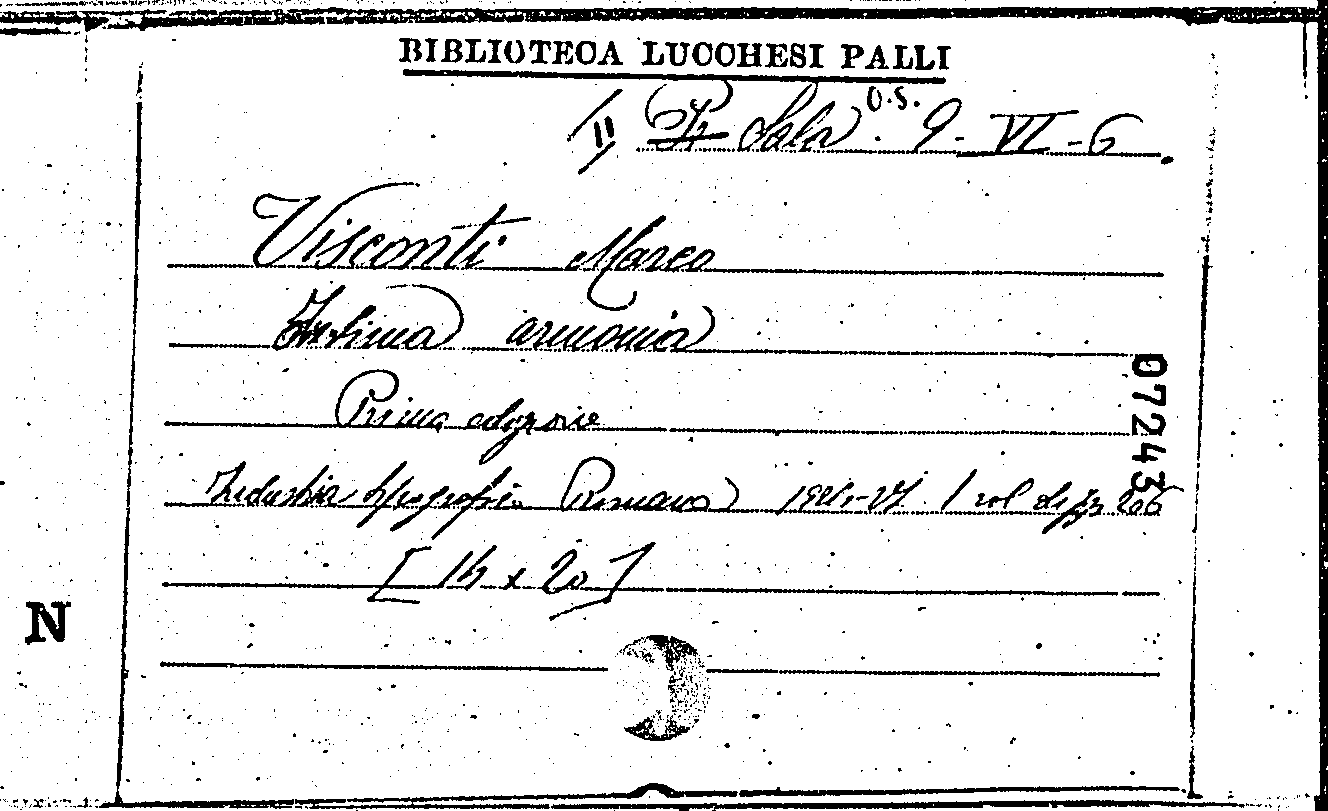 BIBLIOTECA LUCCHESI PALLI
II Sala O.S. 9-VI-6
Visconti Marco
Intima armonia
Prima edizione
Industria tipografica Romana 1 vol di pp 206
[14 x 20]
07243
N